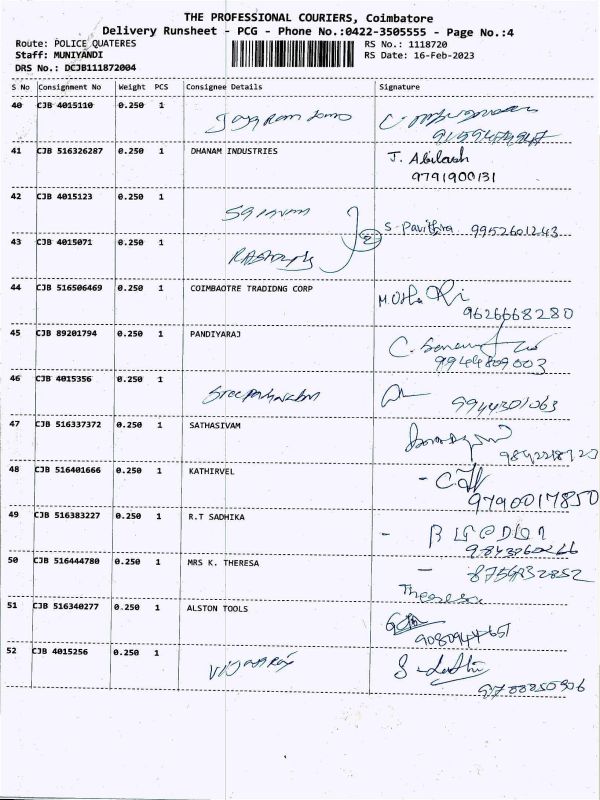 THE PROFESSIONAL COURIERS, Coimbatore
Delivery Runsheet - PCG - Phone No.:0422-3505555 - Page No.:4
Route: POLICE QUATERES RS No.: 1118720
Staff: MUNIYANDI RS Date: 16-Feb-2023
DRS No.: DCJB111872004
S No Consignment No Weight PCS Consignee Details Signature
40 CJB 4015110 0.250 1
41 CJB 516326287 0.250 1 DHANAM INDUSTRIES J. Abilash
9791900131
42 CJB 4015123 0.250 1
2 S. Pavithra 9952601243
43 CJB 4015071 0.250 1
44 CJB 516506469 0.250 1 COIMBAOTRE TRADIDNG CORP
9626668280
45 CJB 89201794 0.250 1 PANDIYARAJ
9944809003
46 CJB 4015356 0.250 1
9944301063
47 CJB 516337372 0.250 1 SATHASIVAM
48 CJB 516401666 0.250 1 KATHIRVEL
9790017850
49 CJB 516383227 0.250 1 R.T SADHIKA
50 CJB 516444780 0.250 1 MRS K. THERESA
Theresa
51 CJB 516340277 0.250 1 ALSTON TOOLS
52 CJB 4015256 0.250 1